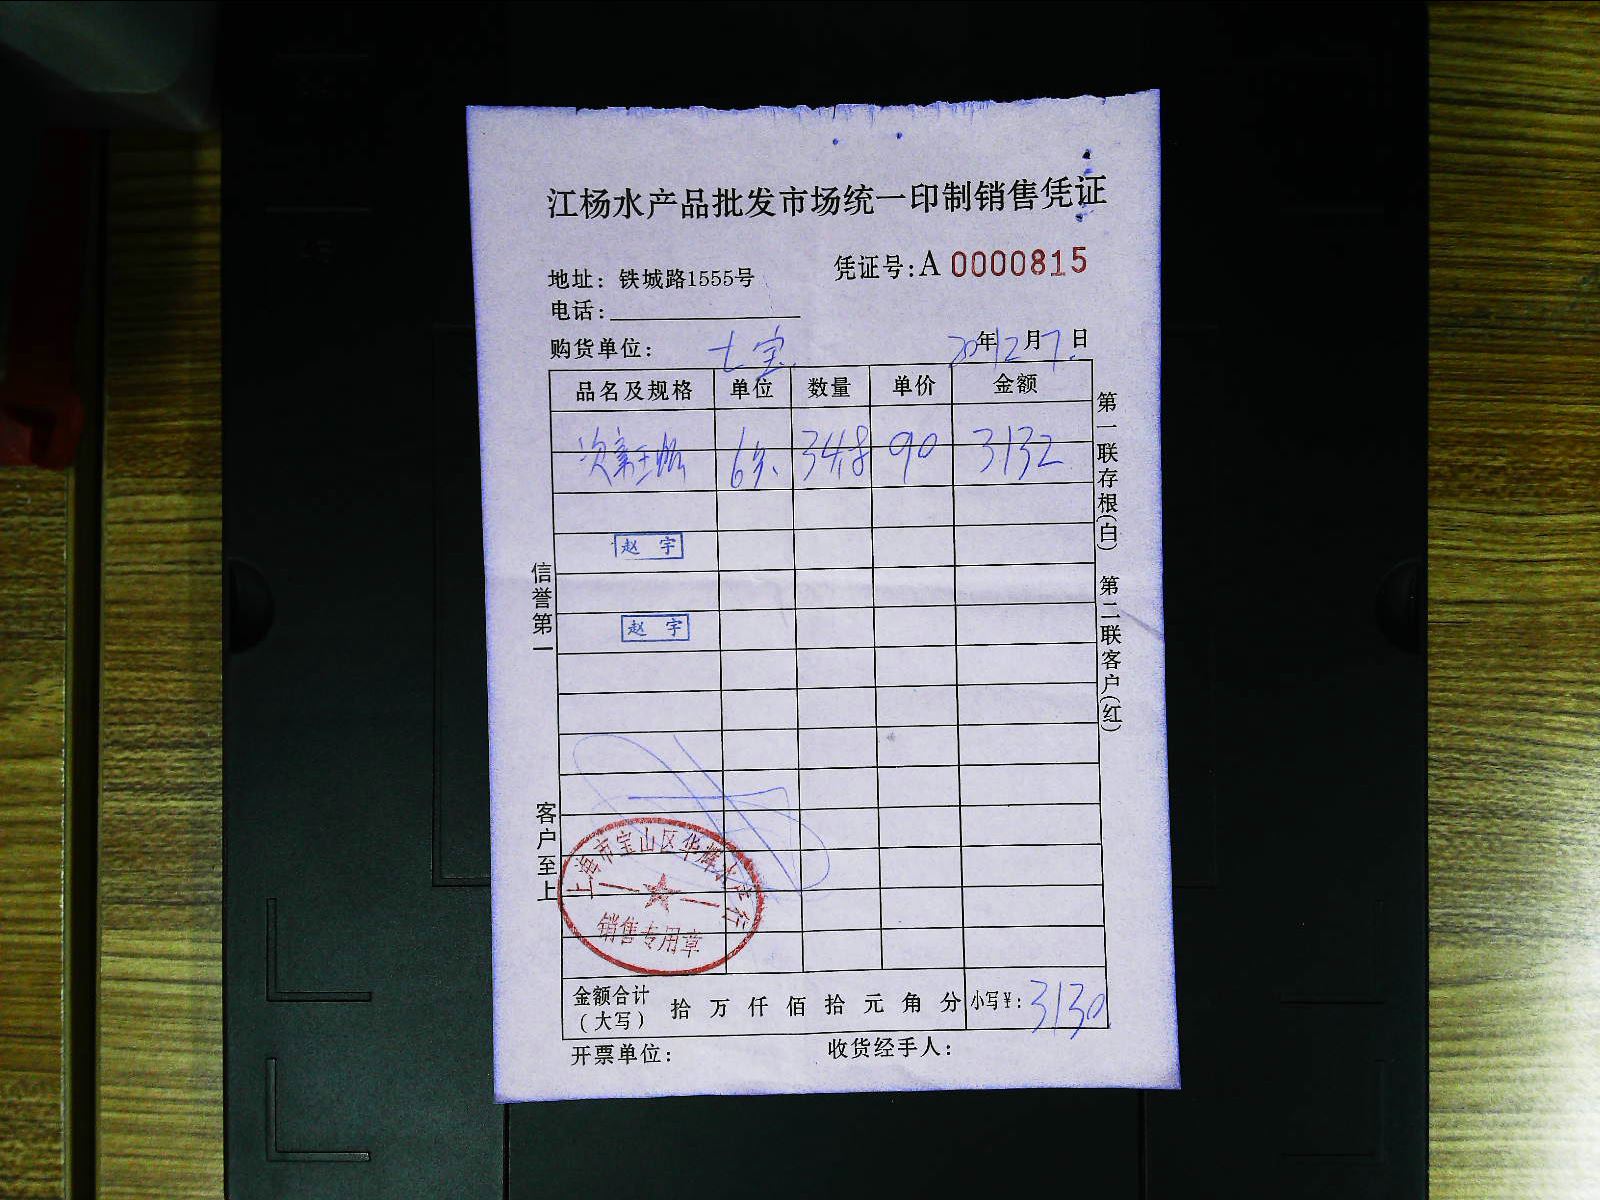 江杨水产品批发市场统一印制销售凭证
凭证号:A 0000815
地址: 铁城路1555号
电话:
购货单位: 七宝 20年12月7日
品名及规格 单位 数量 单价 金额
34.8 90 3132
赵 宇
赵 宇
信誉第一
客户至上
第一联存根(白) 第二联客户(红)
上海市宝山区华辉水产行
销售专用章
金额合计(大写) 拾 万 仟 佰 拾 元 角 分 小写¥: 3130
开票单位: 收货经手人: